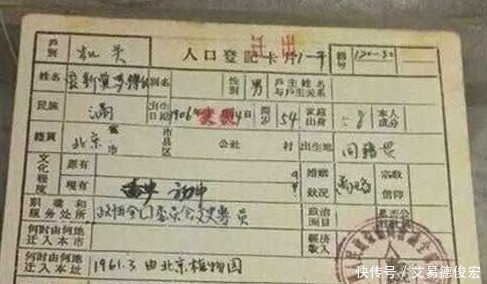 户别 机关 人口登记卡片1一 迁出 编号 120-32
姓名 爱新觉罗溥仪 别名 性别 男 户主姓名与户主关系
民族 满 出生日期 1906年 日 周岁 54 家庭出身 本人成分
籍贯 北京 省市 市县区 公社 村 出生地 同籍贯
文化程度 原有 婚姻状况 宗教信仰
现有 初中
职业和服务处所 政协全国委员会文史专员 政治面目 是否公
何时由何地迁入本市 经济收入
何时由何地迁入本址 1961.3由北京植物园
快传号/艾易德俊宏